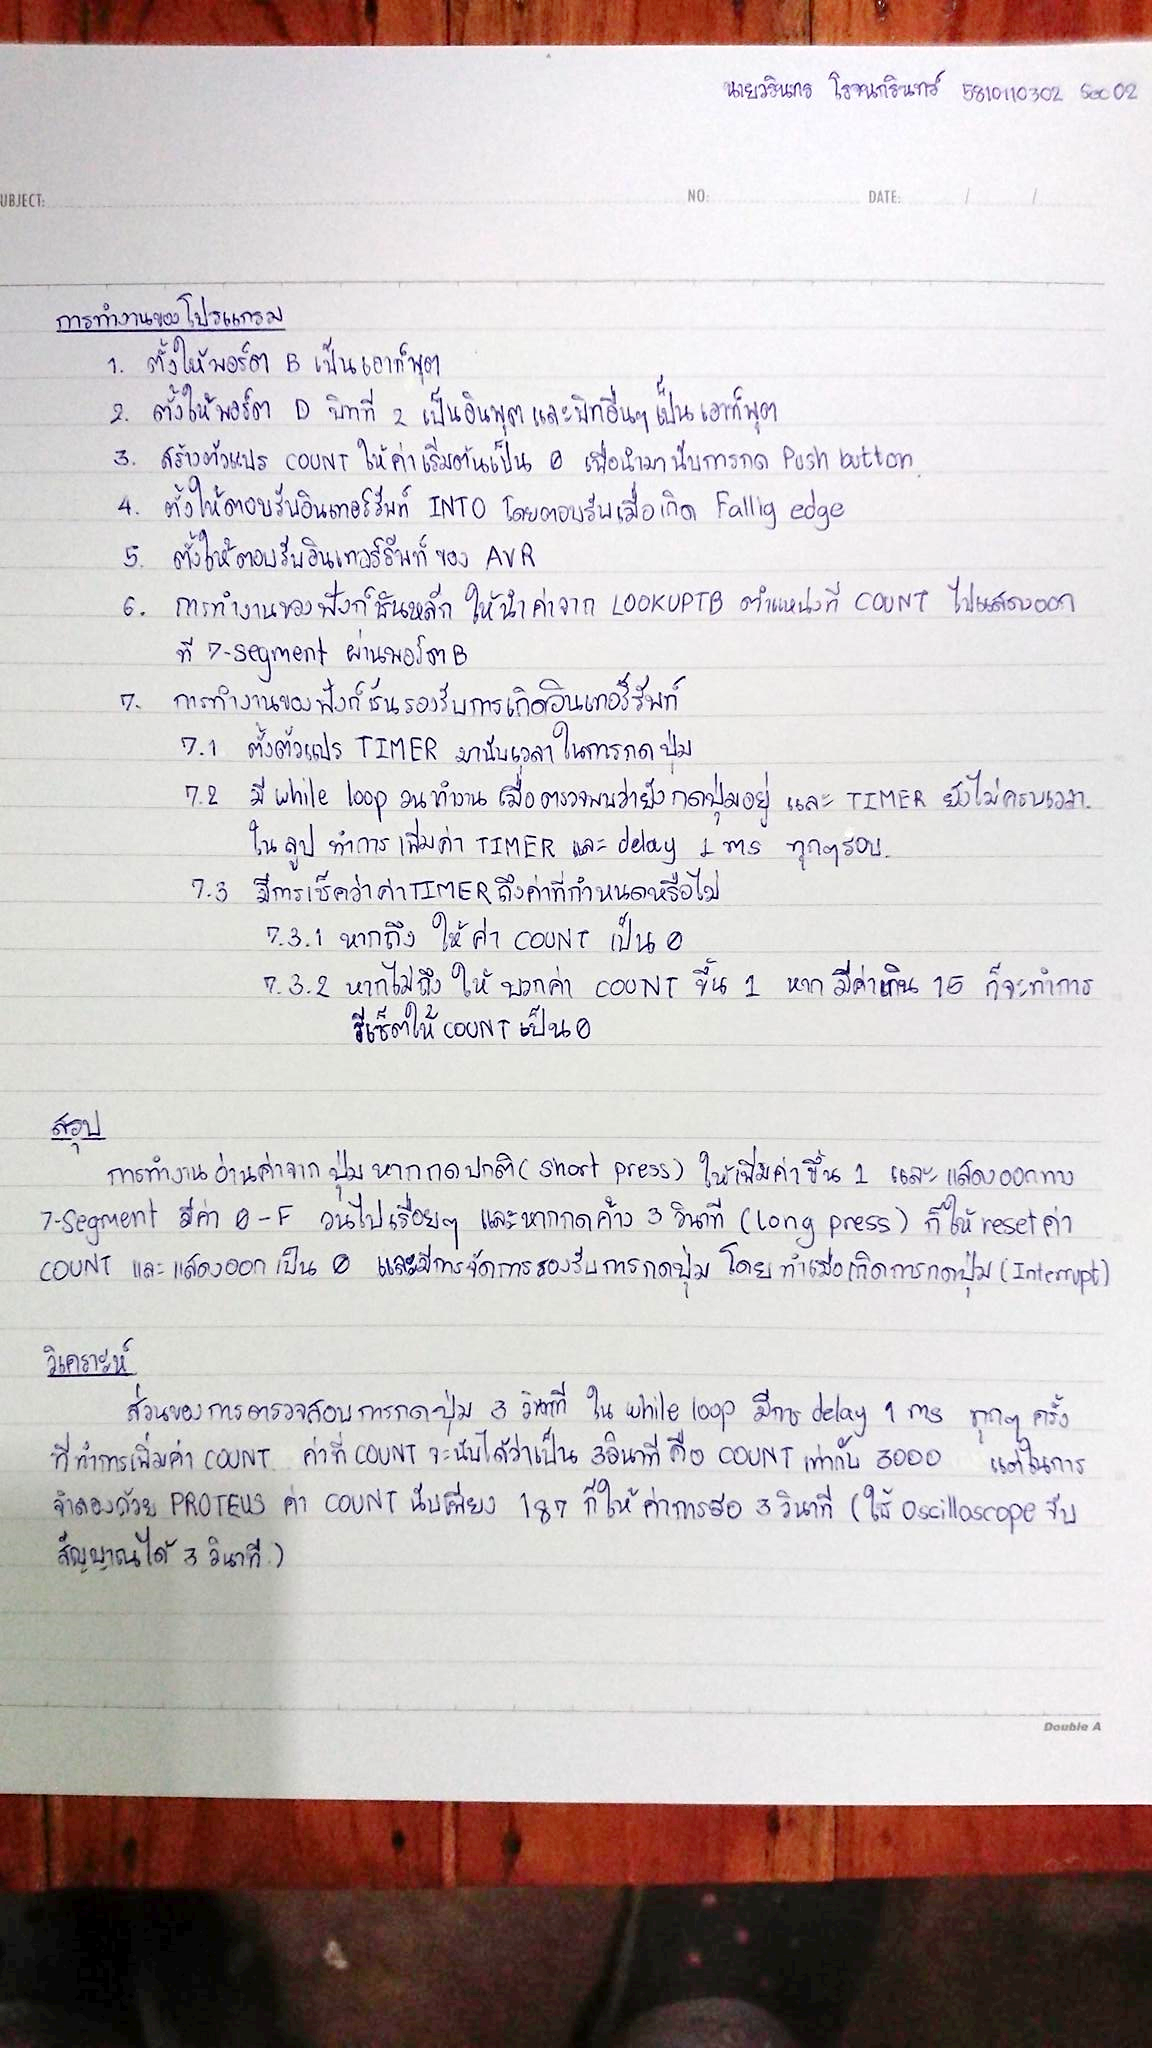 นายวรินทร โรจนกรินทร์ 5810110302 Sec 02
UBJECT: NO: DATE: / /
การทำงานของโปรแกรม
1. ตั้งให้พอร์ต B เป็นเอาท์พุต
2. ตั้งให้พอร์ต D บิทที่ 2 เป็นอินพุต และบิทอื่นๆ เป็นเอาท์พุต
3. สร้างตัวแปร COUNT ให้ค่าเริ่มต้นเป็น 0 เพื่อนำมานับการกด Push button
4. ตั้งให้ตอบรับอินเทอร์รัพท์ INT0 โดยตอบรับเมื่อเกิด Fallig edge
5. ตั้งให้ตอบรับอินเทอร์รัพท์ ของ AVR
6. การทำงานของฟังก์ชันหลัก ให้นำค่าจาก LOOKUPTB ตำแหน่งที่ COUNT ไปแสดงออก
ที่ 7-segment ผ่านพอร์ต B
7. การทำงานของฟังก์ชันรองรับการเกิดอินเทอร์รัพท์
7.1 ตั้งตัวแปร TIMER มานับเวลาในการกดปุ่ม
7.2 มี while loop วนทำงาน เมื่อตรวจพบว่ายังกดปุ่มอยู่ และ TIMER ยังไม่ครบเวลา
ใน ลูป ทำการเพิ่มค่า TIMER และ delay 1 ms ทุกๆรอบ.
7.3 มีการเช็คว่าค่า TIMER ถึงค่าที่กำหนดหรือไม่
7.3.1 หากถึง ให้ค่า COUNT เป็น 0
7.3.2 หากไม่ถึง ให้ บวกค่า COUNT ขึ้น 1 หาก มีค่าเกิน 15 ก็จะทำการ
รีเซ็ตให้ COUNT เป็น 0
สรุป
การทำงาน อ่านค่าจาก ปุ่ม หากกดปกติ (short press) ให้เพิ่มค่าขึ้น 1 และแสดงออกทาง
7-Segment มีค่า 0-F วนไปเรื่อยๆ และหากกดค้าง 3 วินาที (long press) ก็ให้ reset ค่า
COUNT และแสดงออกเป็น 0 และมีการจัดการรองรับการกดปุ่ม โดย ทำเมื่อเกิดการกดปุ่ม (Interrupt)
วิเคราะห์
ส่วนของการตรวจสอบการกดปุ่ม 3 วินาที ใน while loop มีการ delay 1 ms ทุกๆ ครั้ง
ที่ทำการเพิ่มค่า COUNT ค่าที่ COUNT จะนับได้ว่าเป็น 3วินาที คือ COUNT เท่ากับ 3000 แต่ในการ
จำลองด้วย PROTEUS ค่า COUNT นับเพียง 187 ก็ให้ค่าการรอ 3 วินาที (ใช้ Oscilloscope จับ
สัญญาณได้ 3 วินาที.)
Double A